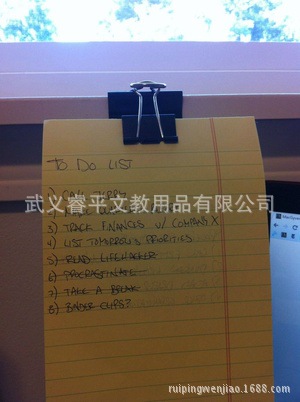 TO DO LIST
1) CALL JERRY
武义睿平文教用品有限公司
2)
3) TRACK FINANCES W/ COMPANY X
4) LIST TOMORROW'S PRIORITIES
5) READ LIFEHACKER
6) PROCRASTINATE
7) TAKE A BREAK
8) BINDER CLIPS?
ruipingwenjiao.1688.com